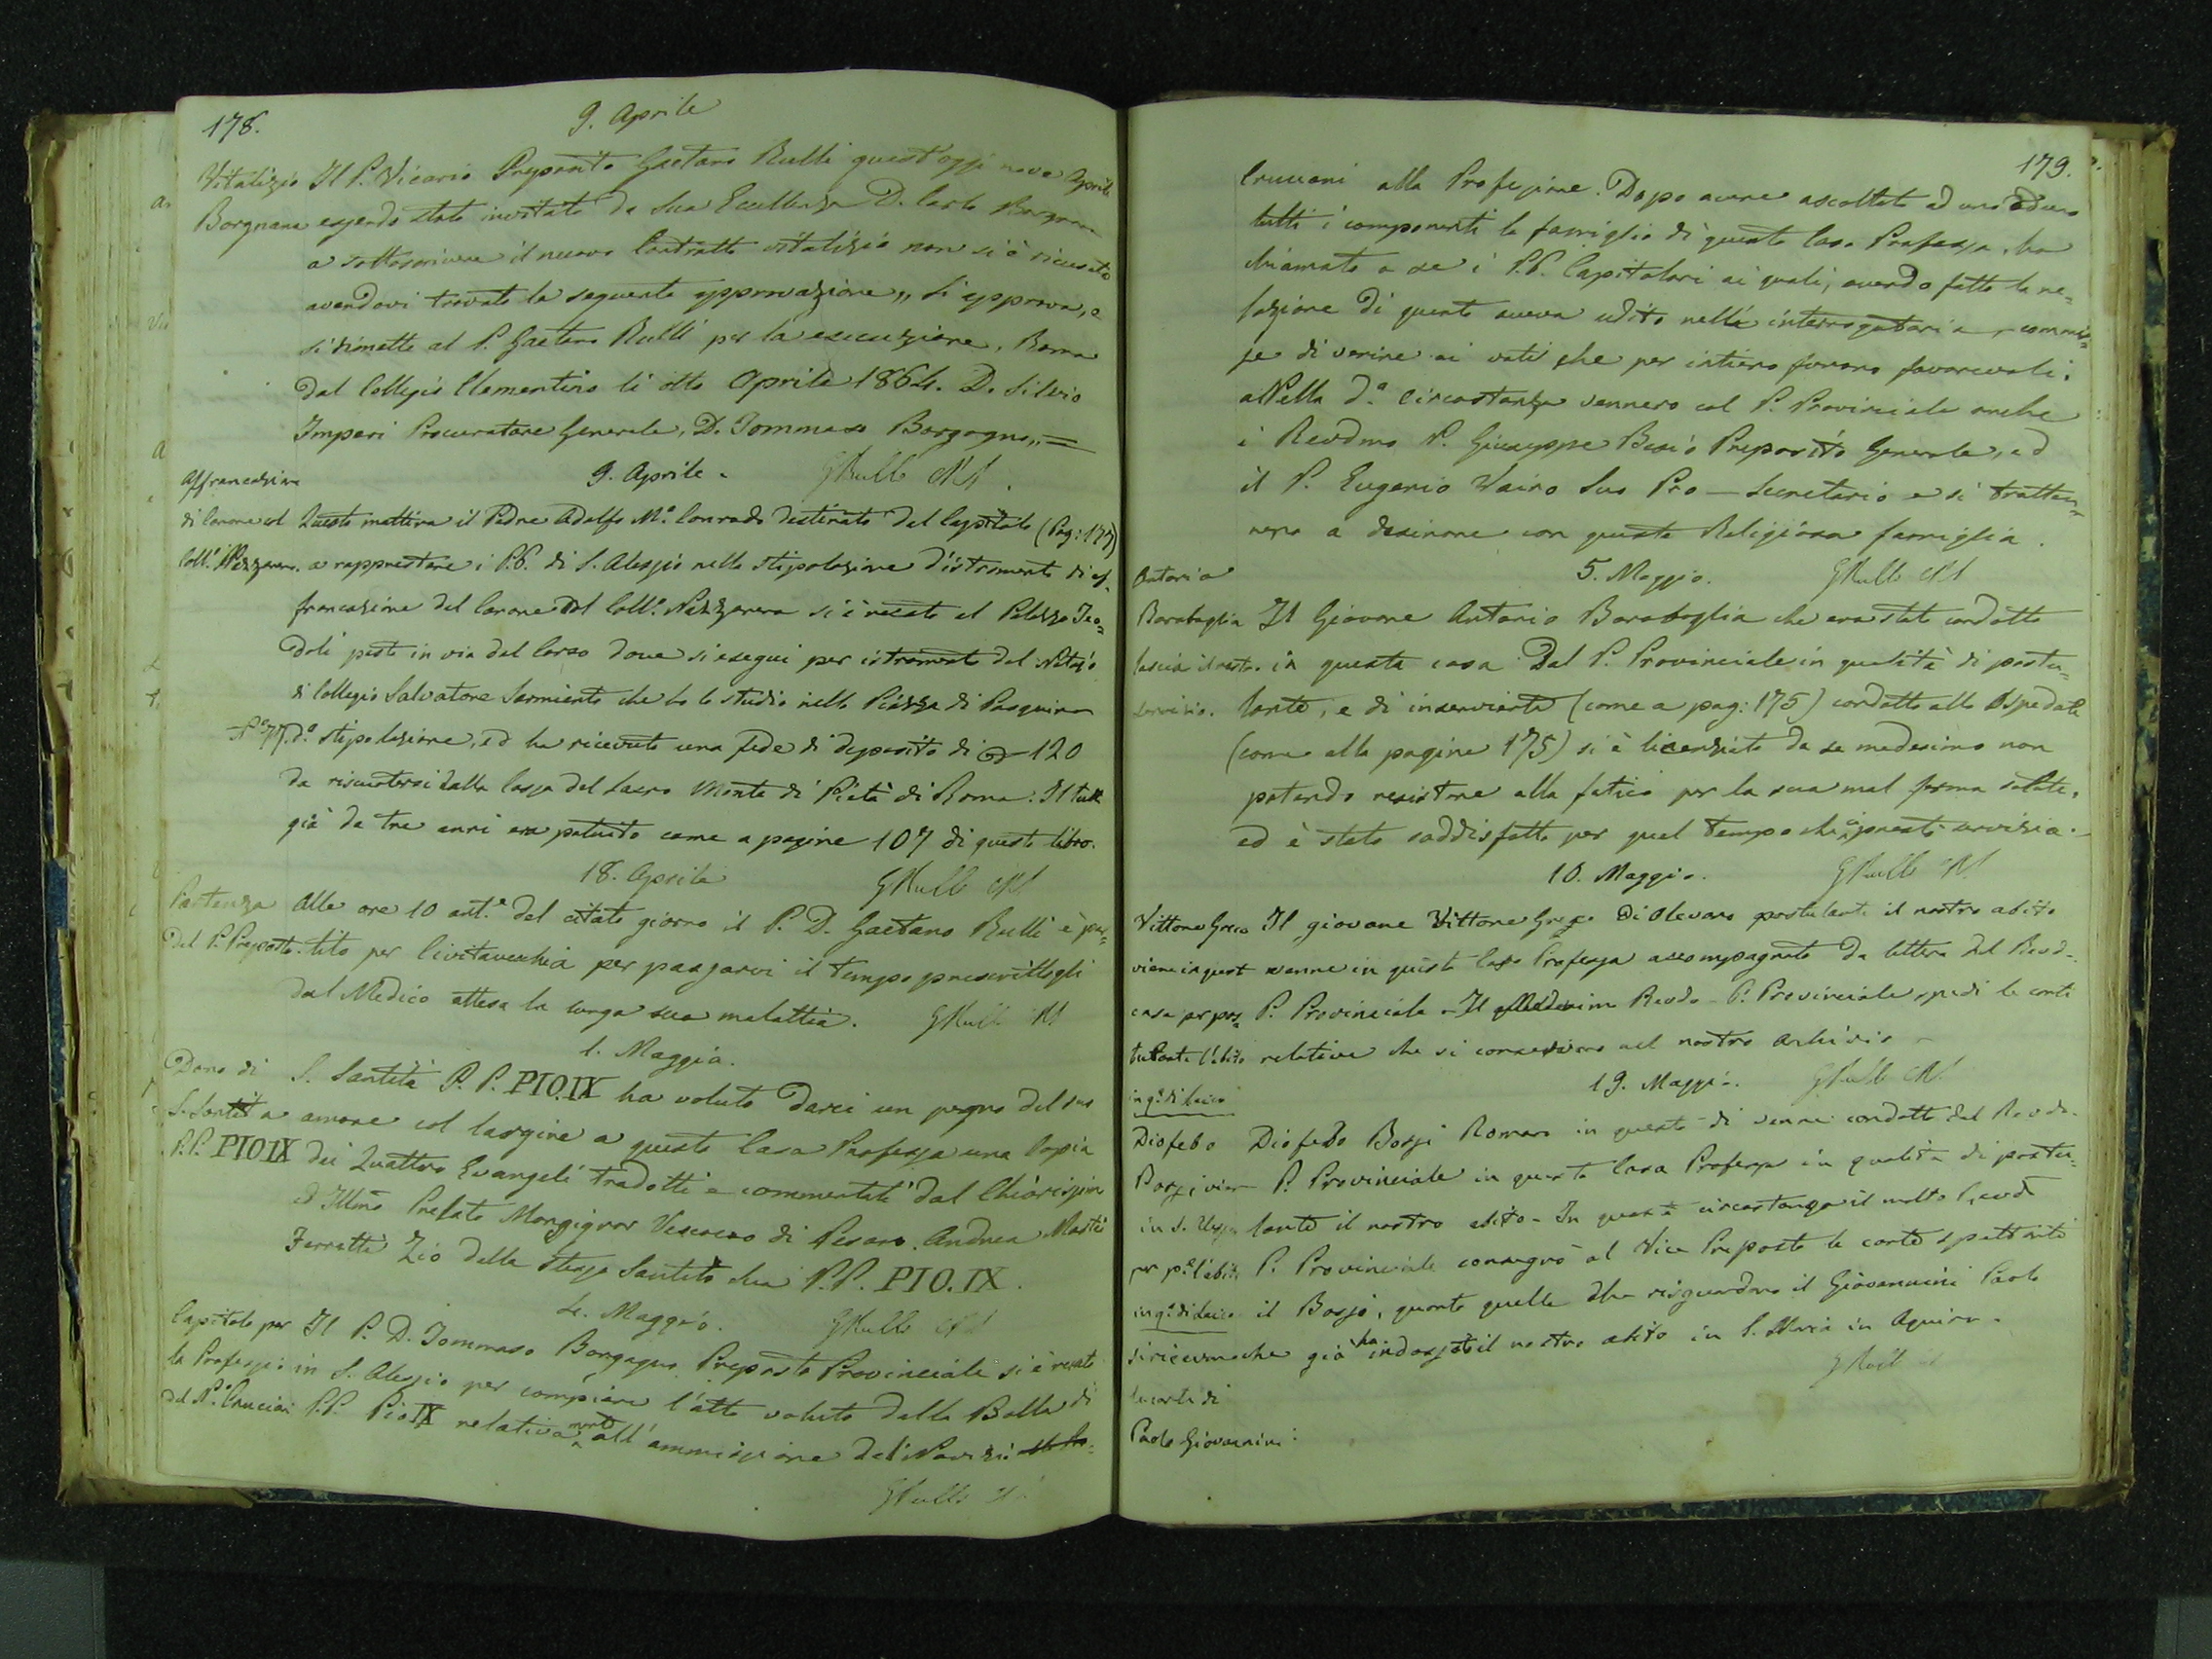 178.
9. Aprile
Vitalizio Il P. Vicario Preposito Gaetano Rulli quest'oggi nove Aprile
Borgnana essendo stato invitato da Sua Eccellenza D. Carlo
a sottoscrivere il nuovo Contratto vitalizio non si è ricusato
avendovi trovato la seguente approvazione „ Si approva, e
si rimette al P. Gaetano Rulli per la esecuzione, Roma
dal Collegio Clementino li otto Aprile 1864. D. Silvio
Imperi Procuratore Generale, D. Tommaso Borgogno „ =
9. Aprile. GRulli CRS.
Affrancazione
di Canone col Questa mattina il Padre Adolfo M.ª Conrado destinato dal Capitolo (Pag: 177)
Coll.º Nazzareno. a rappresentare i P.P. di S. Alessio nella stipolazione d'istromento di af-
francazione del Canone dal Coll.º Nazzareno si è recato al Palazzo Teo=
doli posto in via del Corso dove si eseguì per istromento del Notajo
di Collegio Salvatore Sarmiento che ha lo studio nella Piazza di Pasquino
d.ª stipolazione, ed ha ricevuto una fede di deposito di 120
da riscuotersi dalla Cassa del Sacro Monte di Pietà di Roma. Il tutto
già da tre anni era patuito come a pagine 107 di questo libro.
18. Aprile GRulli CRS
Partenza Alle ore 10 ant.e del citato giorno il P. D. Gaetano Rulli è par=
del P. Preposto. tito per Civitavecchia per passarvi il tempo prescrittogli
dal Medico attesa la lunga sua malattia. GRulli CRS
1. Maggio.
Dono di S. Santità P. P. PIO.IX ha voluto darci un pegno del suo
S. Santità amore col largire a questa Casa Professa una Copia
P.P. PIO IX dei Quattro Evangeli tradotti e commentati dal Chiarissimo
ed Illmo Prelato Monsignor Vescovo di Pesaro. Andrea Mastai
Ferretti Zio della stessa Santità Sua P.P. PIO.IX.
4. Maggio. GRulli CRS
Capitolo per Il P. D. Tommaso Borgogno Preposto Provinciale si è recato
la Professio in S. Alessio per compiere l'atto voluto dalla Bolla di
del N.º Cruciani P.P. Pio IX relativamente all'ammissione dei Novizi
GRulli
179.
Cruciani alla Professione. Dopo avere ascoltati ad uno ad uno
tutti i componenti la famiglia di questa Casa Professa, ha
chiamato a se i P.P. Capitolari ai quali, avendo fatto la re=
lazione di quanto aveva udito nelle interrogatorie, commi=
se di venire ai voti che per intiero furono favorevoli.
Nella d.ª circostanza vennero col P. Provinciale anche
i Revdmo P. Giuseppe Besio Preposito Generale, ed
il P. Eugenio Vairo suo Pro-Secretario e si tratten=
nero a desinare con questa Religiosa famiglia.
Antonio 5. Maggio. GRulli CRS
Barabaglia Il Giovane Antonio Barabaglia che era stato condotto
lascia il nostro in questa casa dal P. Provinciale in qualità di postu=
servizio. lante, e di inserviente (come a pag: 175) condotto allo Ospedale
(come alla pagina 175) si è licenziato da se medesimo non
potendo resistere alla fatica per la sua mal ferma salute,
ed è stato soddisfatto per quel tempo che ci prestò servizio.
10. Maggio. GRulli CRS
Vittore Greco Il giovane Vittore Greco di Olevano postulante il nostro abito
viene in quest venne in questa Casa Professa accompagnato da lettera del Revd.
casa per pos= P. Provinciale. Il Medesimo Revdo P. Provinciale, spedì le carte
tulante l'abito relative che si conservano nel nostro Archivio
in q.tà di laico 19. Maggio. GRulli CRS
Diofebo Diofebo Bossi Romano in questo dì venne condotto dal Revdo.
Bossi viene P. Provinciale in questa Casa Professa in qualità di postu=
in S. Alessio lante il nostro abito. In questa circostanza il molto Revd
per p.re l'abito P. Provinciale consegnò al Vice Preposto le carte spettanti
in q.tà di laico il Bossi, quanto quelle che risguardano il Giovannini Paolo
si ricevono che già ha indossato il nostro abito in S. Maria in Aquiro.
le carte di GRulli
Paolo Giovannini.